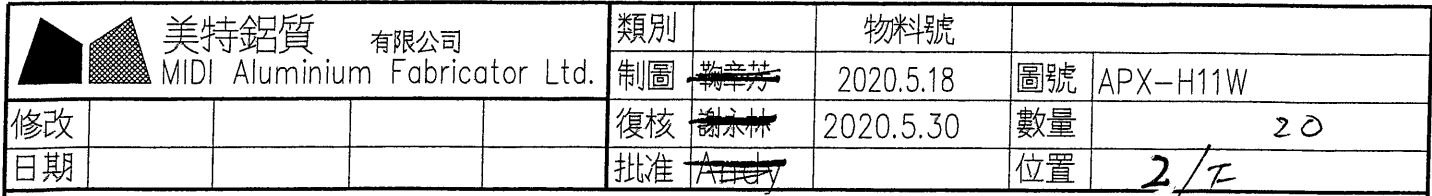 美特鋁質 有限公司
MIDI Aluminium Fabricator Ltd.
類別 物料號
制圖 2020.5.18 圖號 APX-H11W
修改 復核 謝永林 2020.5.30 數量 20
日期 批准 Andy 位置 2/F